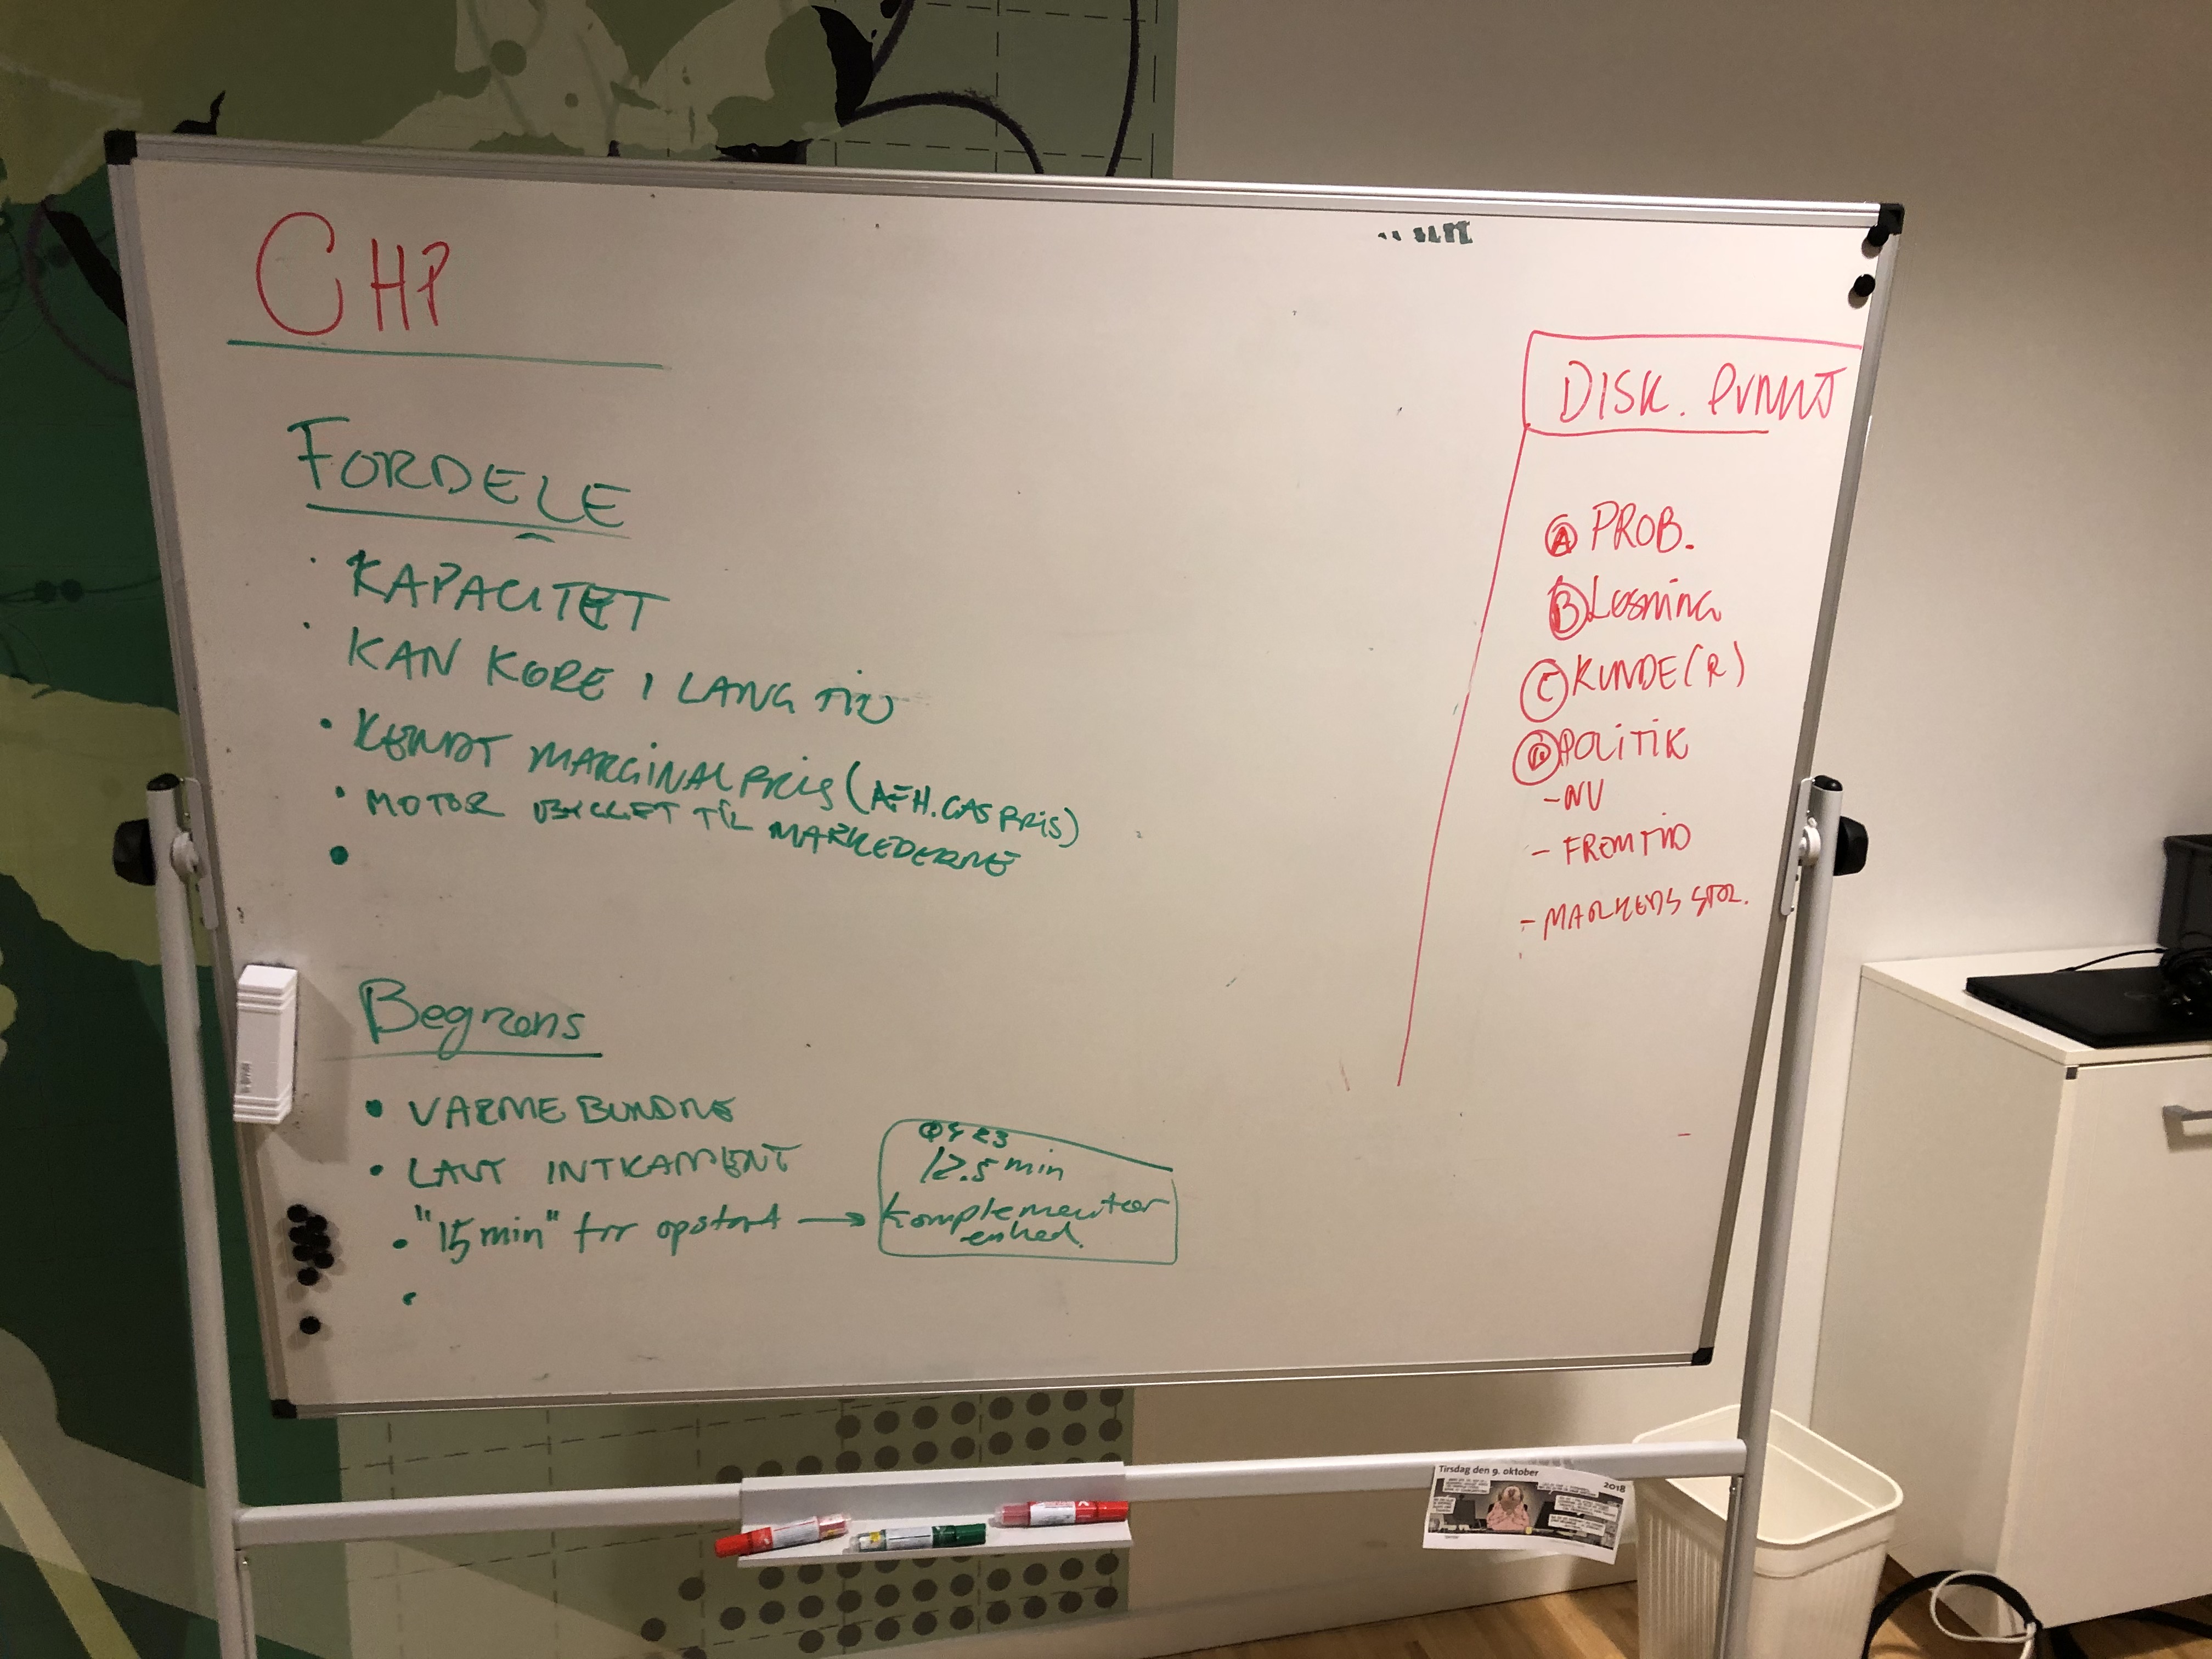 CHP
FORDELE
· KAPACITET
· KAN KØRE I LANG TID
· KENDT MARGINALPRIS (AFH. GAS PRIS)
· MOTOR BYGGET TIL MARKEDERNE
Begræns
· VARME BUNDNE
· LAVT INTKAMENT
· "15 min" før opstart →
12.5 min
Komplementær
enhed.
DISK. PUNKT
A PROB.
B Løsning
C KUNDE(R)
D POLITIK
- NU
- FREMTID
- MARKEDS STØR.
Tirsdag den 9. oktober
2018